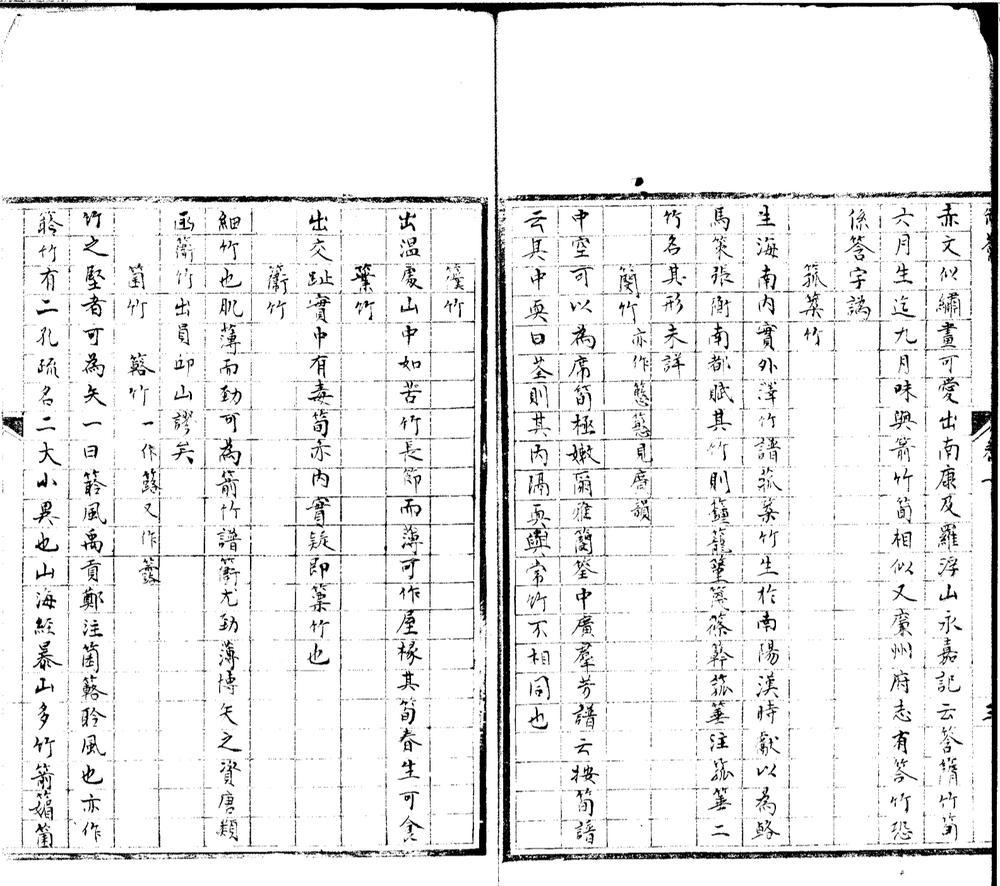 赤文似繡畫可愛出南康及羅浮山永嘉記云箁䈙竹筍
六月生迄九月味與箭竹筍相似又廣州府志有箁竹恐
係答字譌
箛䇲竹
生海南内實外澤竹譜菰䇲竹生於南陽漢時獻以為輅
馬策張衡南都賦其竹則籦籠䈽篾篠簳箛箠注箛箠二
竹名其形未詳
䉍竹 亦作䈚 見唐韻
中空可以為席筍極嫩爾雅簢筡中廣羣芳譜云按筍譜
云其中㚑曰筡則其内隔㚑與常竹不相同也
䈵竹
出溫處山中如苦竹長節而薄可作屋椽其筍春生可食
竹
出交趾實中有毒筍亦内實疑即篥竹也
䉛竹
細竹也肌薄而勁可為箭竹譜䉛尤勁薄博矢之資唐類
函䉛竹出員邱山謬矣
箘竹 簬竹 一作簵又作
竹之堅者可為矢一曰䇞風禹貢鄭注箘簬聆風也亦作
聆竹有二孔疏名二大小異也山海經暴山多竹箭䉋箘